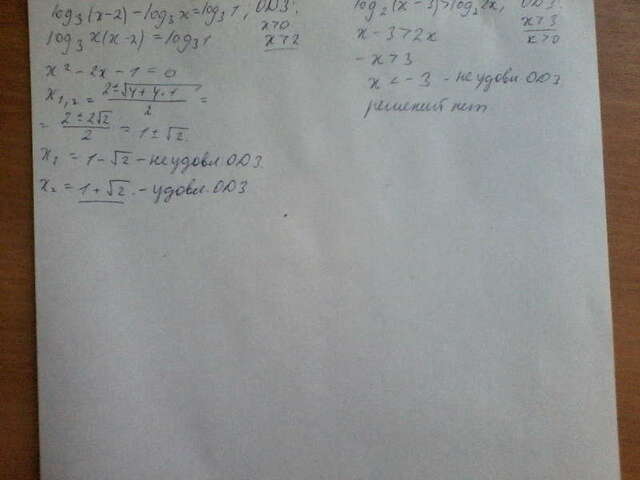 log₃(x-2) - log₃x = log₃1, ОДЗ:
x>0
log₃x(x-2) = log₃1 x>2
x² - 2x - 1 = 0
x₁,₂ = (2±√(4+4·1))/2 =
= (2±2√2)/2 = 1±√2.
x₁ = 1-√2 - не удовл. ОДЗ.
x₂ = 1+√2. - удовл. ОДЗ.
log₂(x-3)>log₂2x, ОДЗ:
x>3
x-3>2x x>0
-x>3
x<-3 - не удовл ОДЗ
решений нет